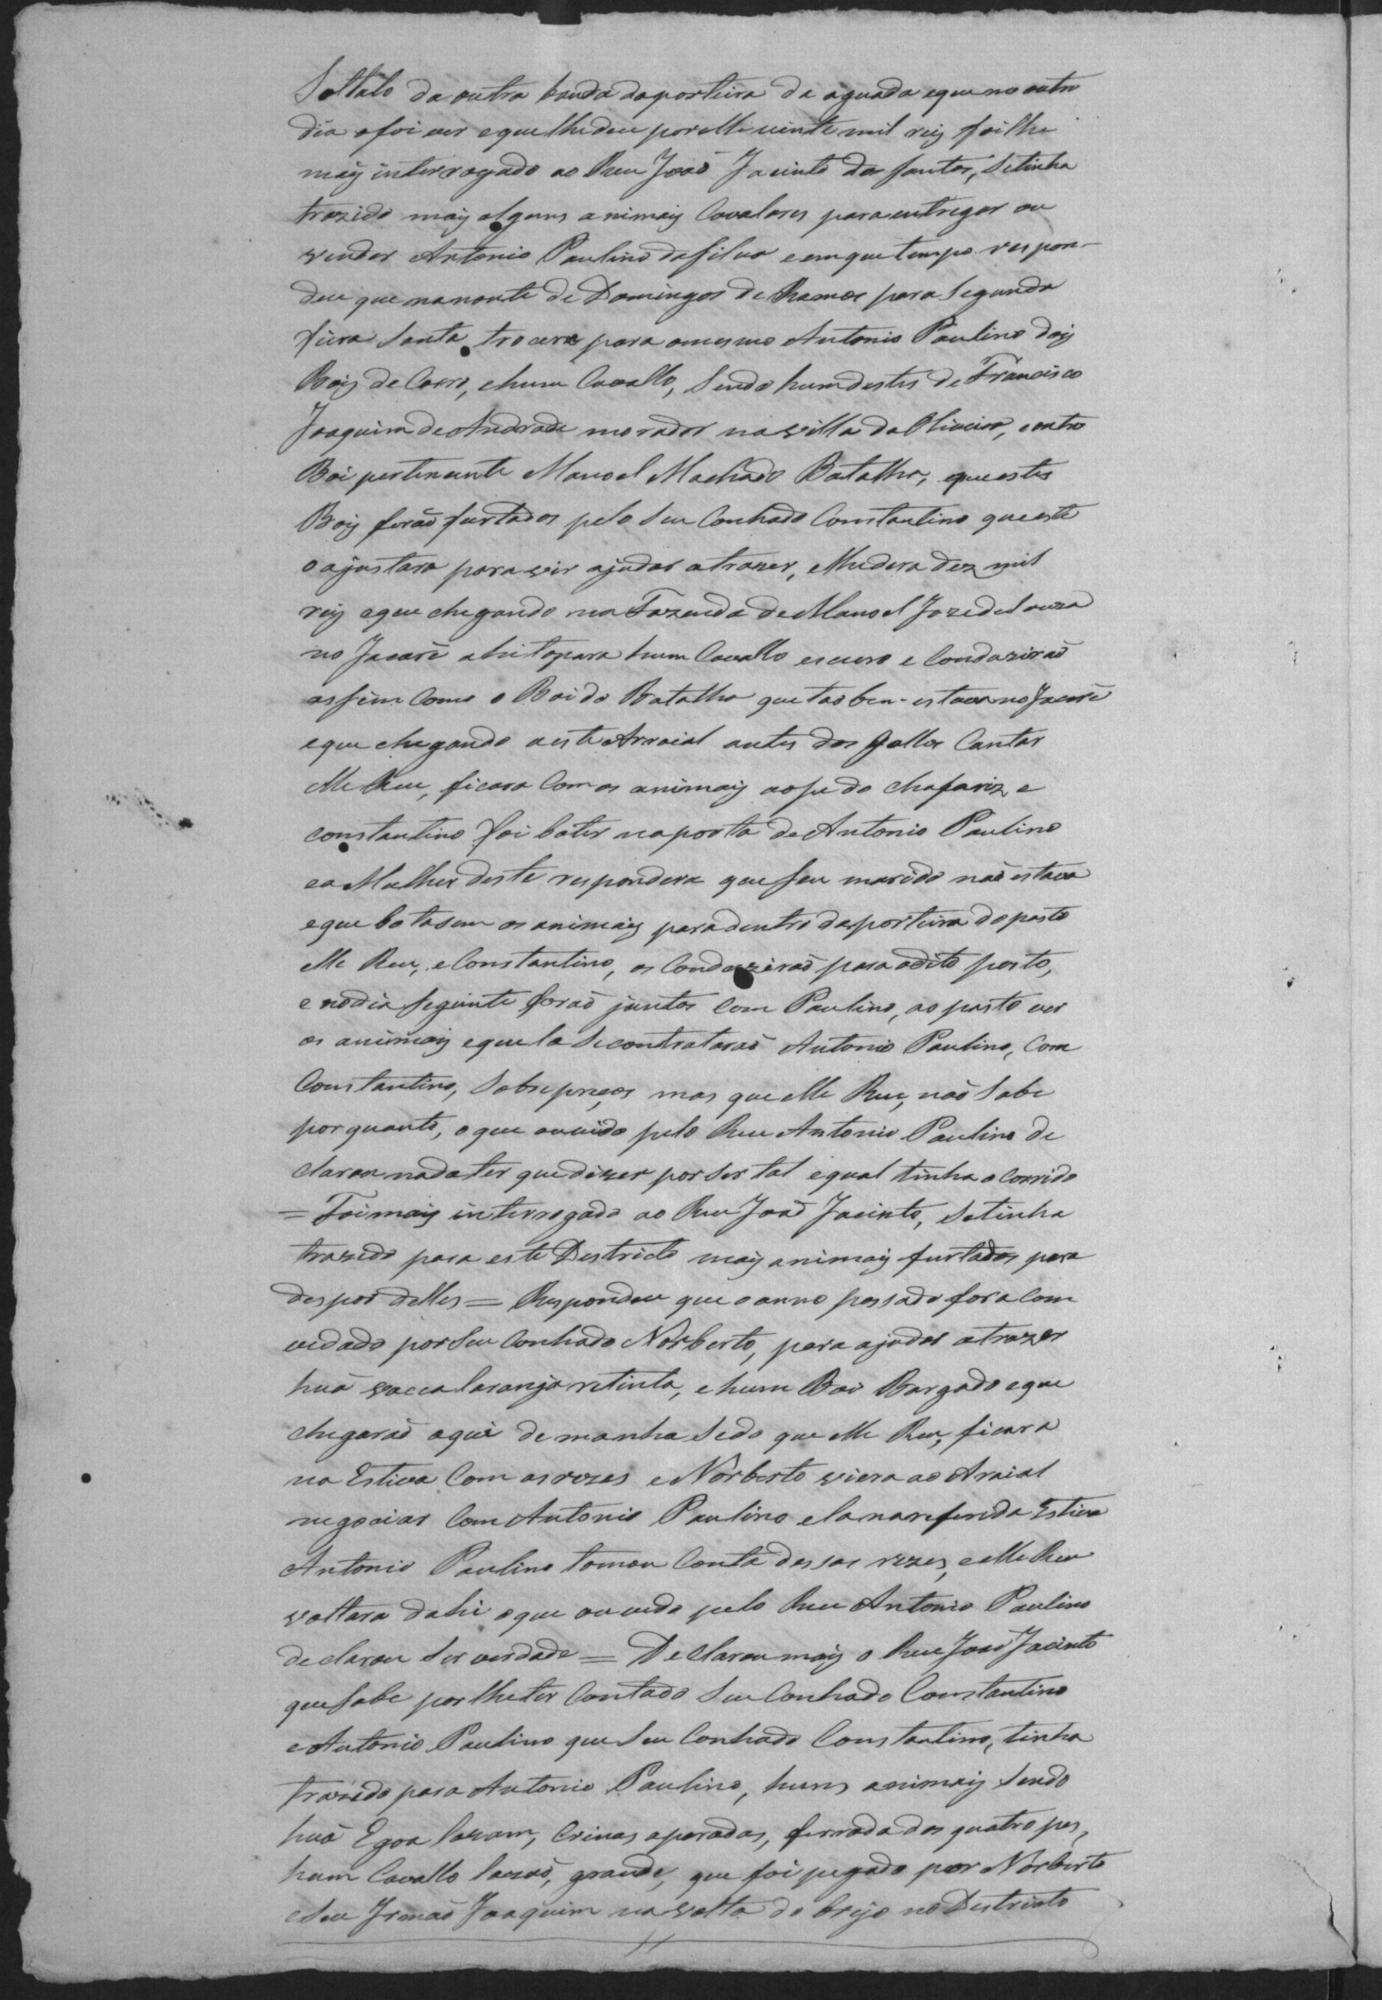 Soltálo da outra banda daporteira da aguada eque no outro
dia ofoi ver eque lhedeu porelle vinte mil reis foi lhe
mais interrogado ao Reu Joaõ Jacinto dos Santos, Setinha
trazido mais alguns animais Cavalares para entregar ou
vender Antonio Paulino daSilva e emque tempo respon-
deu que nanoute de Domingos de Ramos para Segunda
feira Santa trocera para omesmo Antonio Paulino dois
Bois de Carro, ehum Cavallo, Sendo humdestes de Francisco
Joaquim deAndrade morador navilla da Oliveira, eoutro
Boi pertencente Manoel Machado Batalha, queestes
Bois foraõ furtados pelo Seu Conhado Constantino queeste
oajustara para vir ajudar atrazer, elhedera dez mil
reis eque chegando na Fazenda deManoel Joze deSouza
no Jacaré ahi topara hum Cavallo escuro e Conduziraõ
assim Como o Boi do Batalha que taõ bem estava no Jacaré
eque chegando aeste Arraial antes dos Gallos Cantar
elle Reu, ficara Com os animais aopé do chafariz e
constantino foi bater naporta deAntonio Paulino
ea Mulher deste respondera que Seu marido naõ estava
eque botasem os animais paradentro daporteira do pasto
elle Reu, eConstantino, os Conduziraõ para odito pasto,
e nodia seguinte foraõ juntos com Paulino, ao pasto ver
os animais eque la Secontrataraõ Antonio Paulino, Com
Constantino, Sobre preços mas que elle Reu, naõ Sabe
por quanto, oque ouvido pelo Reu Antonio Paulino de
clarou nadater quedizer por ser tal equal tinha ocorrido
= Foi mais interrogado ao Reu Joaõ Jacinto, Setinha
trazido para este Destricto mais animais furtados para
despor delles = Respondeu que oanno passado fora Com
vedado por Seu Conhado Norberto, para ajudar atrazer
huã vacca laranja retinta, e hum Boi Bargado eque
chegaraõ aqui de manha Sedo que elle Reu, ficara
na Estiva Com asrezes e Norberto viera ao Araial
negociar Com Antonio Paulino ela nareferida Estiva
Antonio Paulino tomou Conta dessas rezes, eelle Reu
voltara dahi oque ouvido pelo Reu Antonio Paulino
declarou Ser verdade = Declarou mais o Reu Joaõ Jacinto
queSabe por lheter Contado Seu Conhado Constantino
eAntonio Paulino que Seu Conhado Constantino, tinha
trazido para Antonio Paulino, huns animais Sendo
huã Egoa lazam, Crinas aparadas, ferrada dos quatro pes,
hum Cavallo lazaõ, grande, que foi pegado por Norberto
eSeu Irmaõ Joaquim na volta do brejo no Destricto